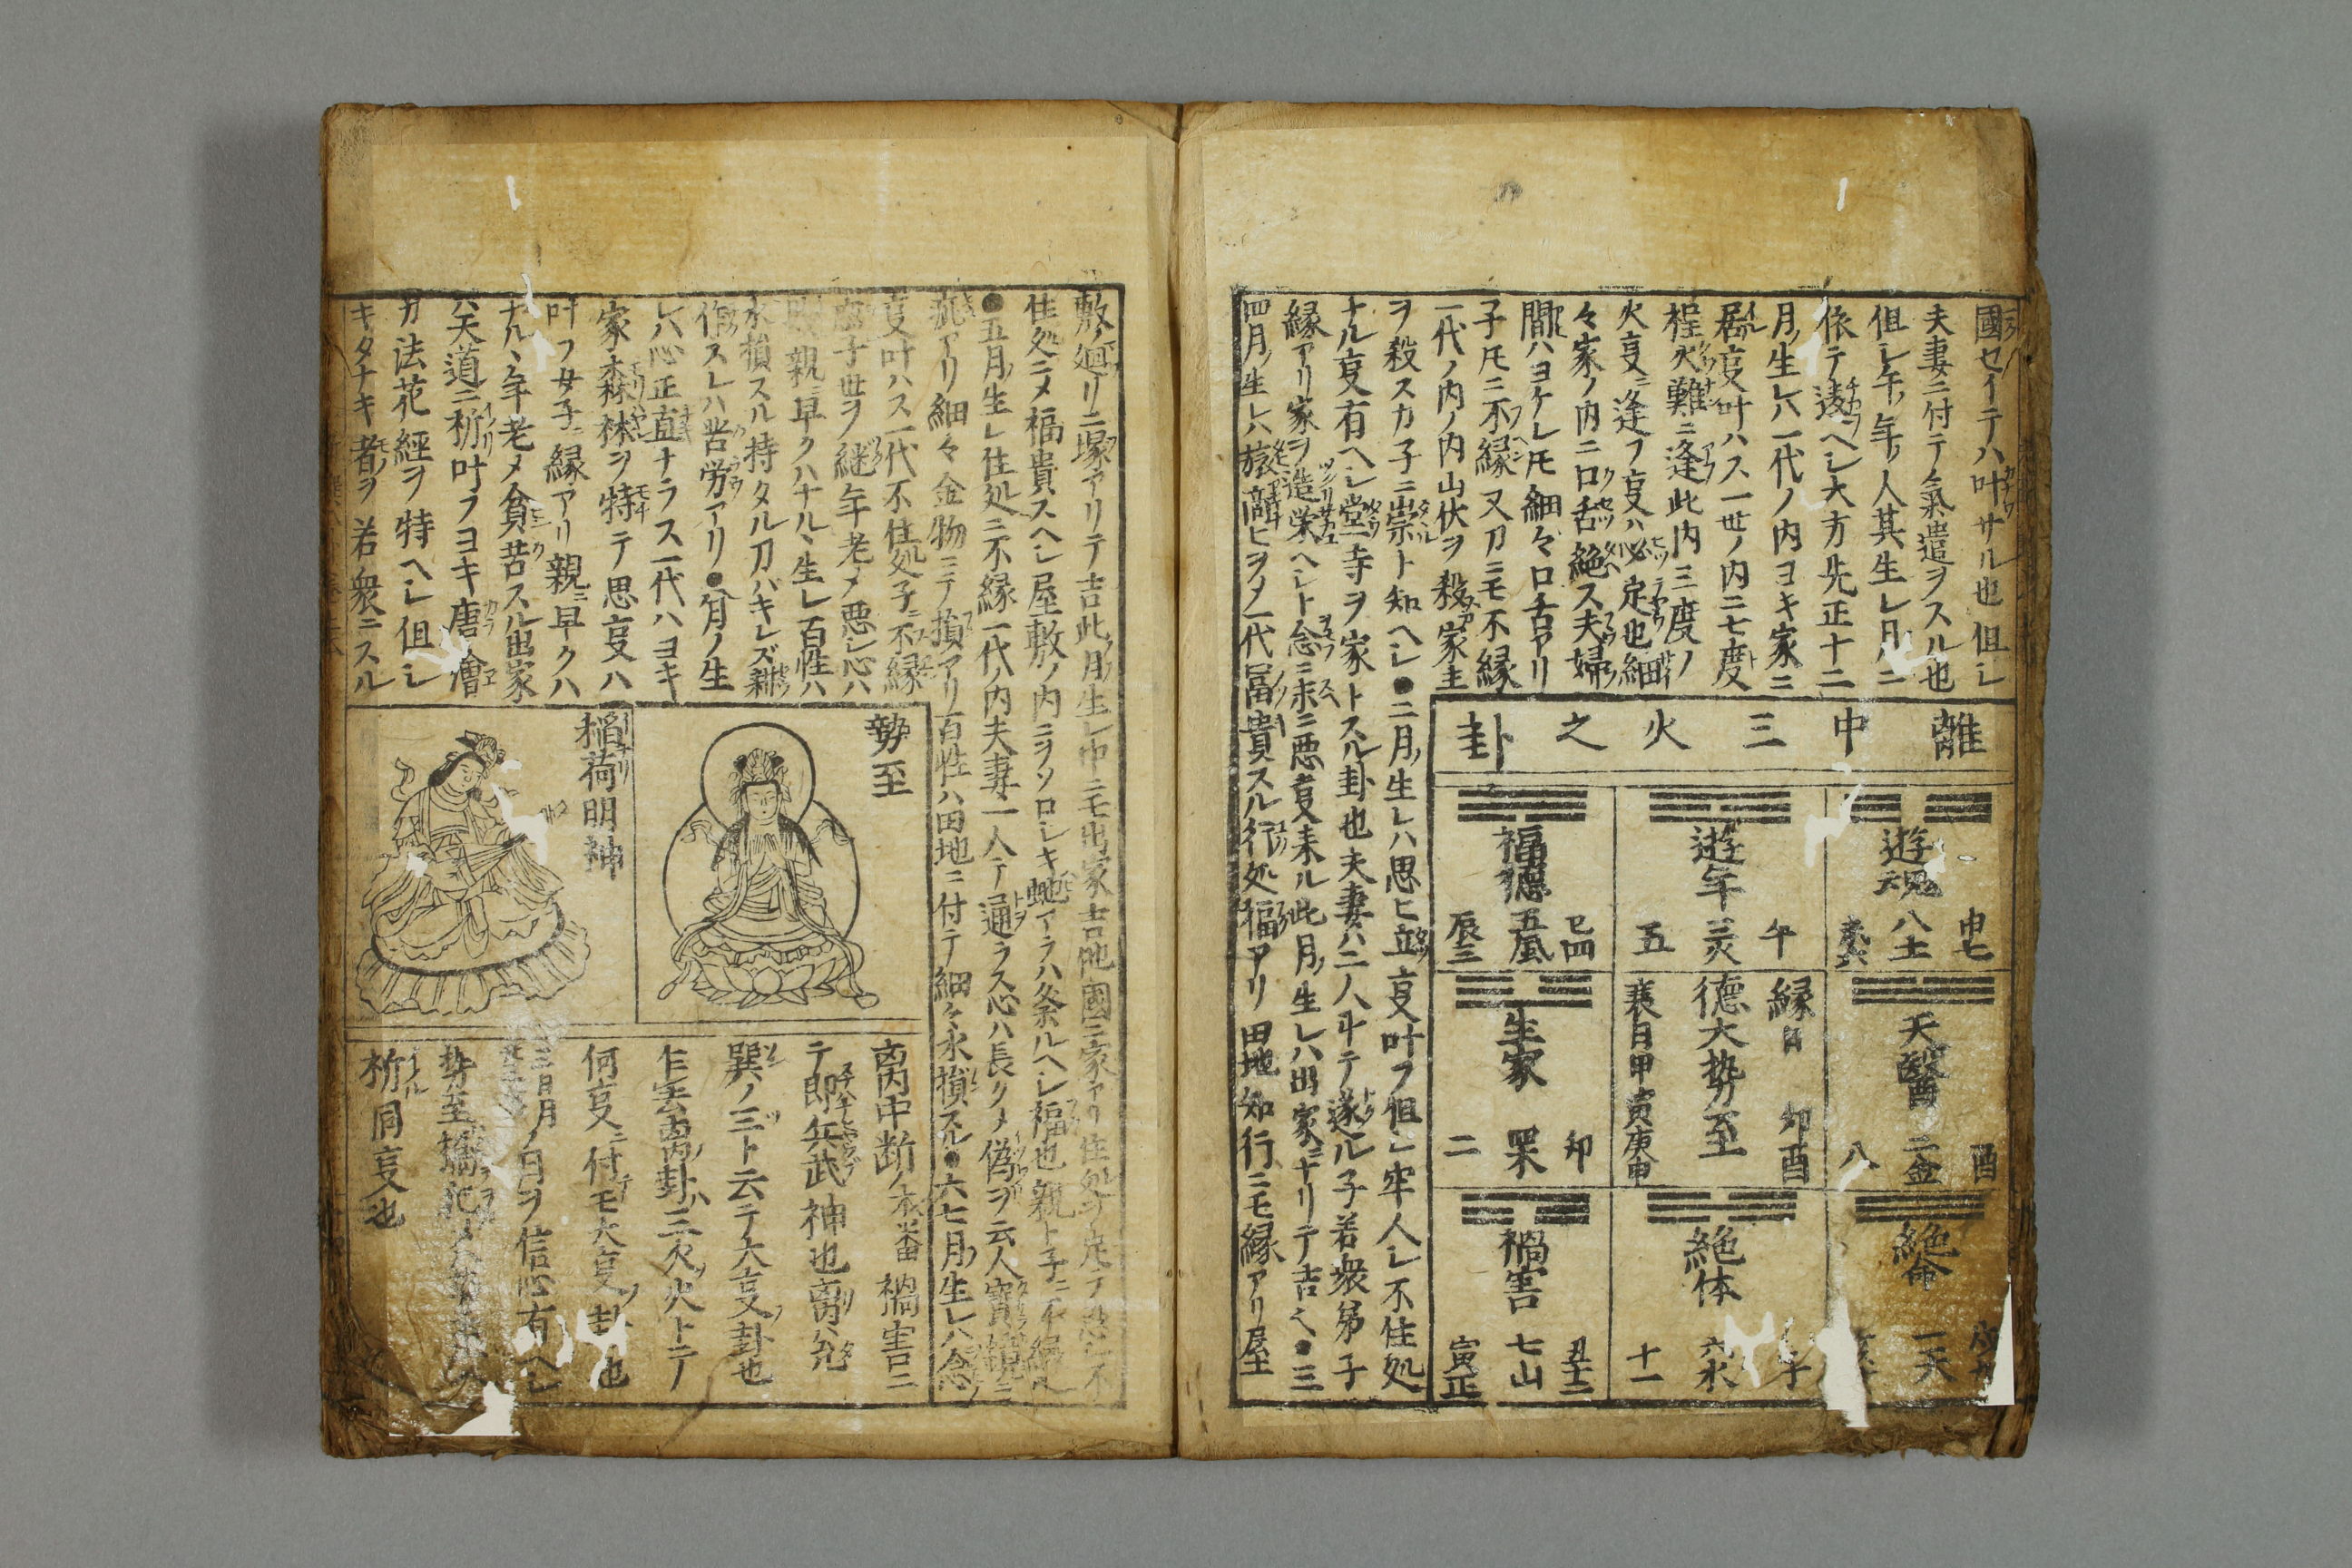 國セイテハ叶サル也但シ
夫妻ニ付テ氣遣ヲスル也
但シ午ノ年ノ人其生レ月ニ
依テ違ヘシ大方先正十二
月ノ生レハ一代ノ内ヨキ家ニ
居叓叶ハス一世ノ内ニ七度
程火難ニ逢此内三度ノ
火叓ニ逢フ叓ハ必定也細
々家ノ内ニ口舌絶ス夫婦ノ
間ハヨケレ𪜈細々口舌アリ
子𪜈ニ不縁又刀ニモ不縁
一代ノ内ノ内山伏ヲ殺家主
ヲ殺スカ子ニ崇ト知ヘシ●二月ノ生レハ思ヒ立叓叶フ但シ牢人シ不住処
ナル叓有ヘシ堂寺ヲ家トスル卦也夫妻ハ二人斗テ遂ル子若衆弟子
縁アリ家ヲ造栄ヘシト念ニ末ニ悪叓来ル此月ノ生レハ出家ニナリテ吉シ●三
四月ノ生レハ旅商ヒヲメ一代冨貴スル行処福アリ田地知行ニモ縁アリ屋
離中三火之卦
遊魂
申七
八土
天醫
酉
二金
八
絶命
一天
遊年
午
三火
五
縁日
卯酉
德大勢至
衰日甲寅庚申
絶体
子
六水
十一
福德
巳四
五風
辰三
生家
卯
二
禍害
丑十二
七山
寅正
敷ノ廻リニ塚アリテ吉此ノ月ノ生レ中ニモ出家吉他國ニ家アリ住処ヲ定テ悪シ不
住処ニメ福貴スヘシ屋敷ノ内ニヲソロシキ虵アラハ祭ルヘシ福也親ト子ニ不縁ル
●五月ノ生レ住処ニ不縁一代ノ内夫妻一人テ通ラス心ハ長クメ偽ヲ云人寶損ニ
疵アリ細々金物ニテ損アリ百性ハ田地ニ付テ細々水損スル●六七月ノ生レハ念
叓叶ハス一代不住処子ニ不縁
子世ヲ継年老メ悪シ心ハ
親ニ早クハナルヽ生レ百性ハ
水損スル持タル刀バキレズ
作スレハ苦労アリ●八月ノ生
レハ心正直ナラス一代ハヨキ
家森林ヲ特テ思叓ハ
叶フ女子ニ縁アリ親ニ早クハ
ナルヽ年老メ貧苦スル出家
ハ天道ニ祈叶フヨキ唐繪
カ法花經ヲ特ヘシ但シ
キタナキ者ヲ若衆ニスル
勢至
稲荷明神
离内中断ノ本番禍害ニ
テ即兵武神也离ハ允
巽ノ三ト云テ大叓ノ卦也
乍去离ノ卦ハ三火ノ火トテノ
何叓ニ付テモ大叓ノ卦也
月ノ日ヲ信心有ヘシ
祈同叓也